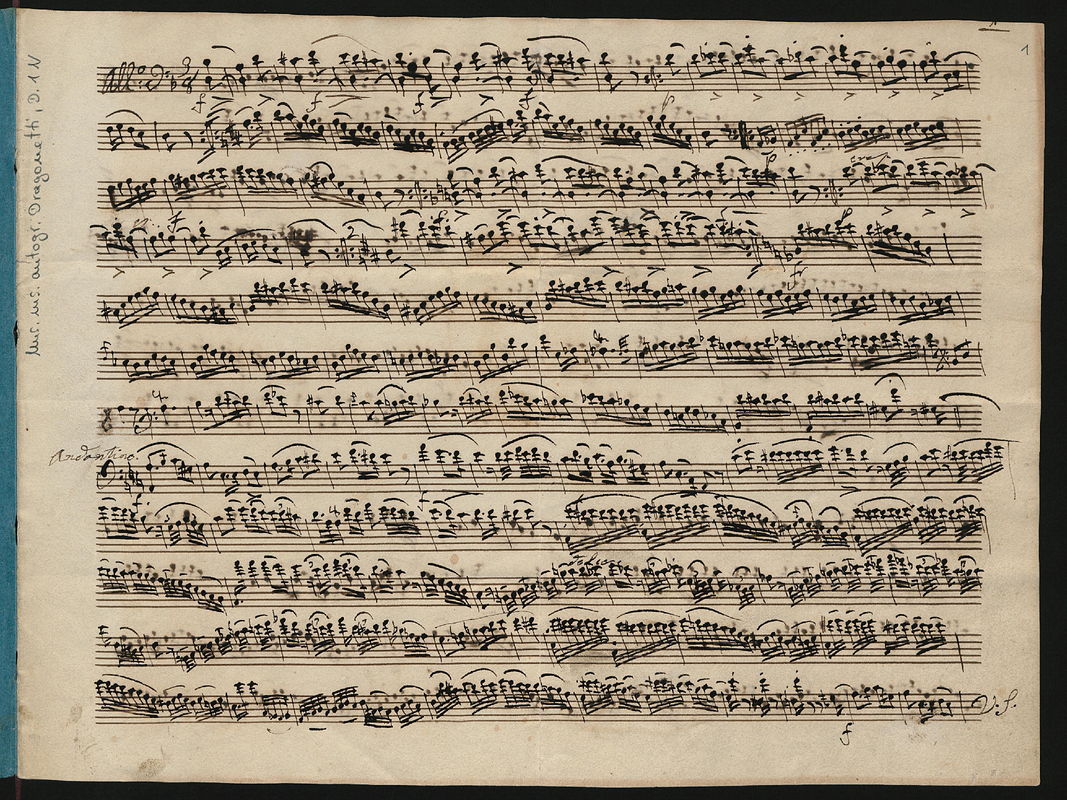 Mus. ms. autogr. Dragonetti, D. 1 N
1
All.o 3/8
f f f f
f
f
f
Andantino.
f
f
V. S.